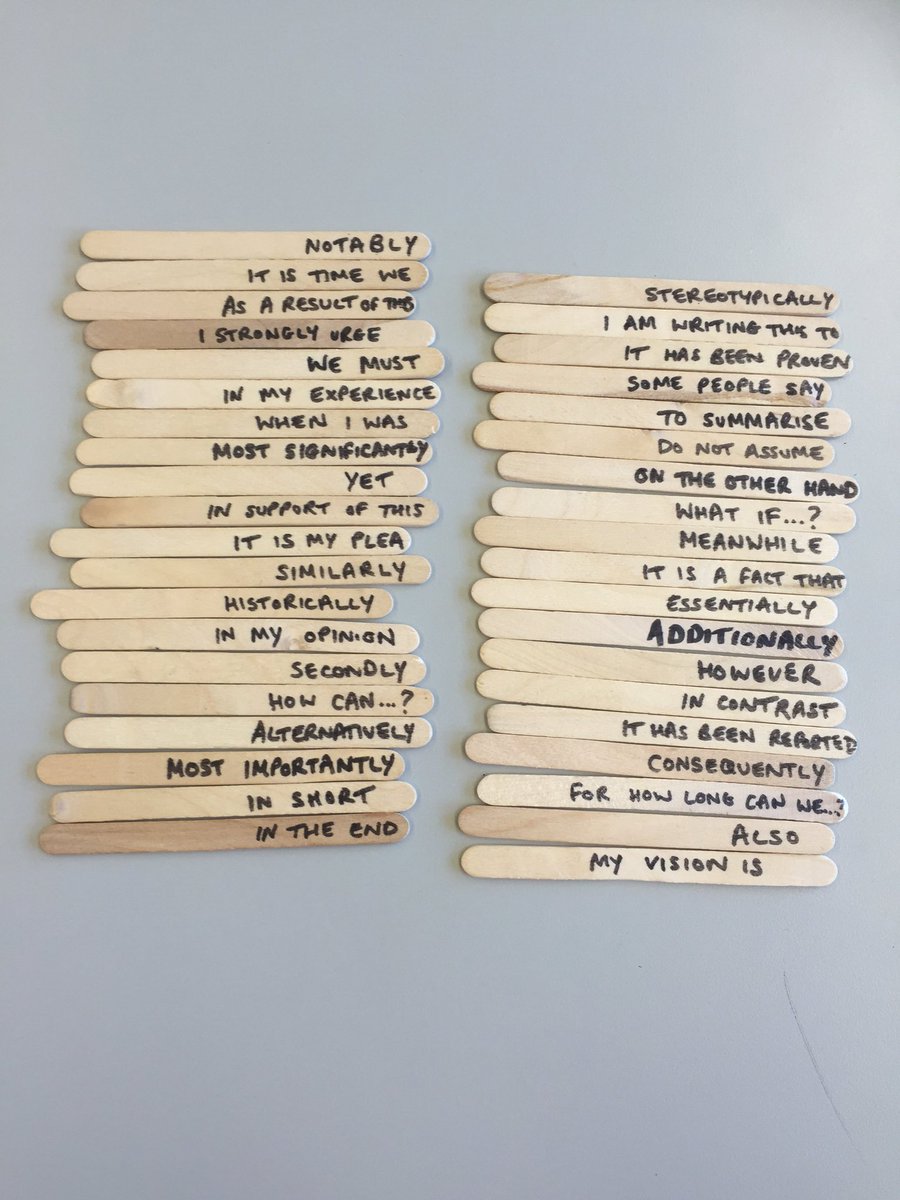 NOTABLY
IT IS TIME WE
AS A RESULT OF THIS
I STRONGLY URGE
WE MUST
IN MY EXPERIENCE
WHEN I WAS
MOST SIGNIFICANTLY
YET
IN SUPPORT OF THIS
IT IS MY PLEA
SIMILARLY
HISTORICALLY
IN MY OPINION
SECONDLY
HOW CAN...?
ALTERNATIVELY
MOST IMPORTANTLY
IN SHORT
IN THE END
STEREOTYPICALLY
I AM WRITING THIS TO
IT HAS BEEN PROVEN
SOME PEOPLE SAY
TO SUMMARISE
DO NOT ASSUME
ON THE OTHER HAND
WHAT IF...?
MEANWHILE
IT IS A FACT THAT
ESSENTIALLY
ADDITIONALLY
HOWEVER
IN CONTRAST
IT HAS BEEN REPORTED
CONSEQUENTLY
FOR HOW LONG CAN WE...?
ALSO
MY VISION IS